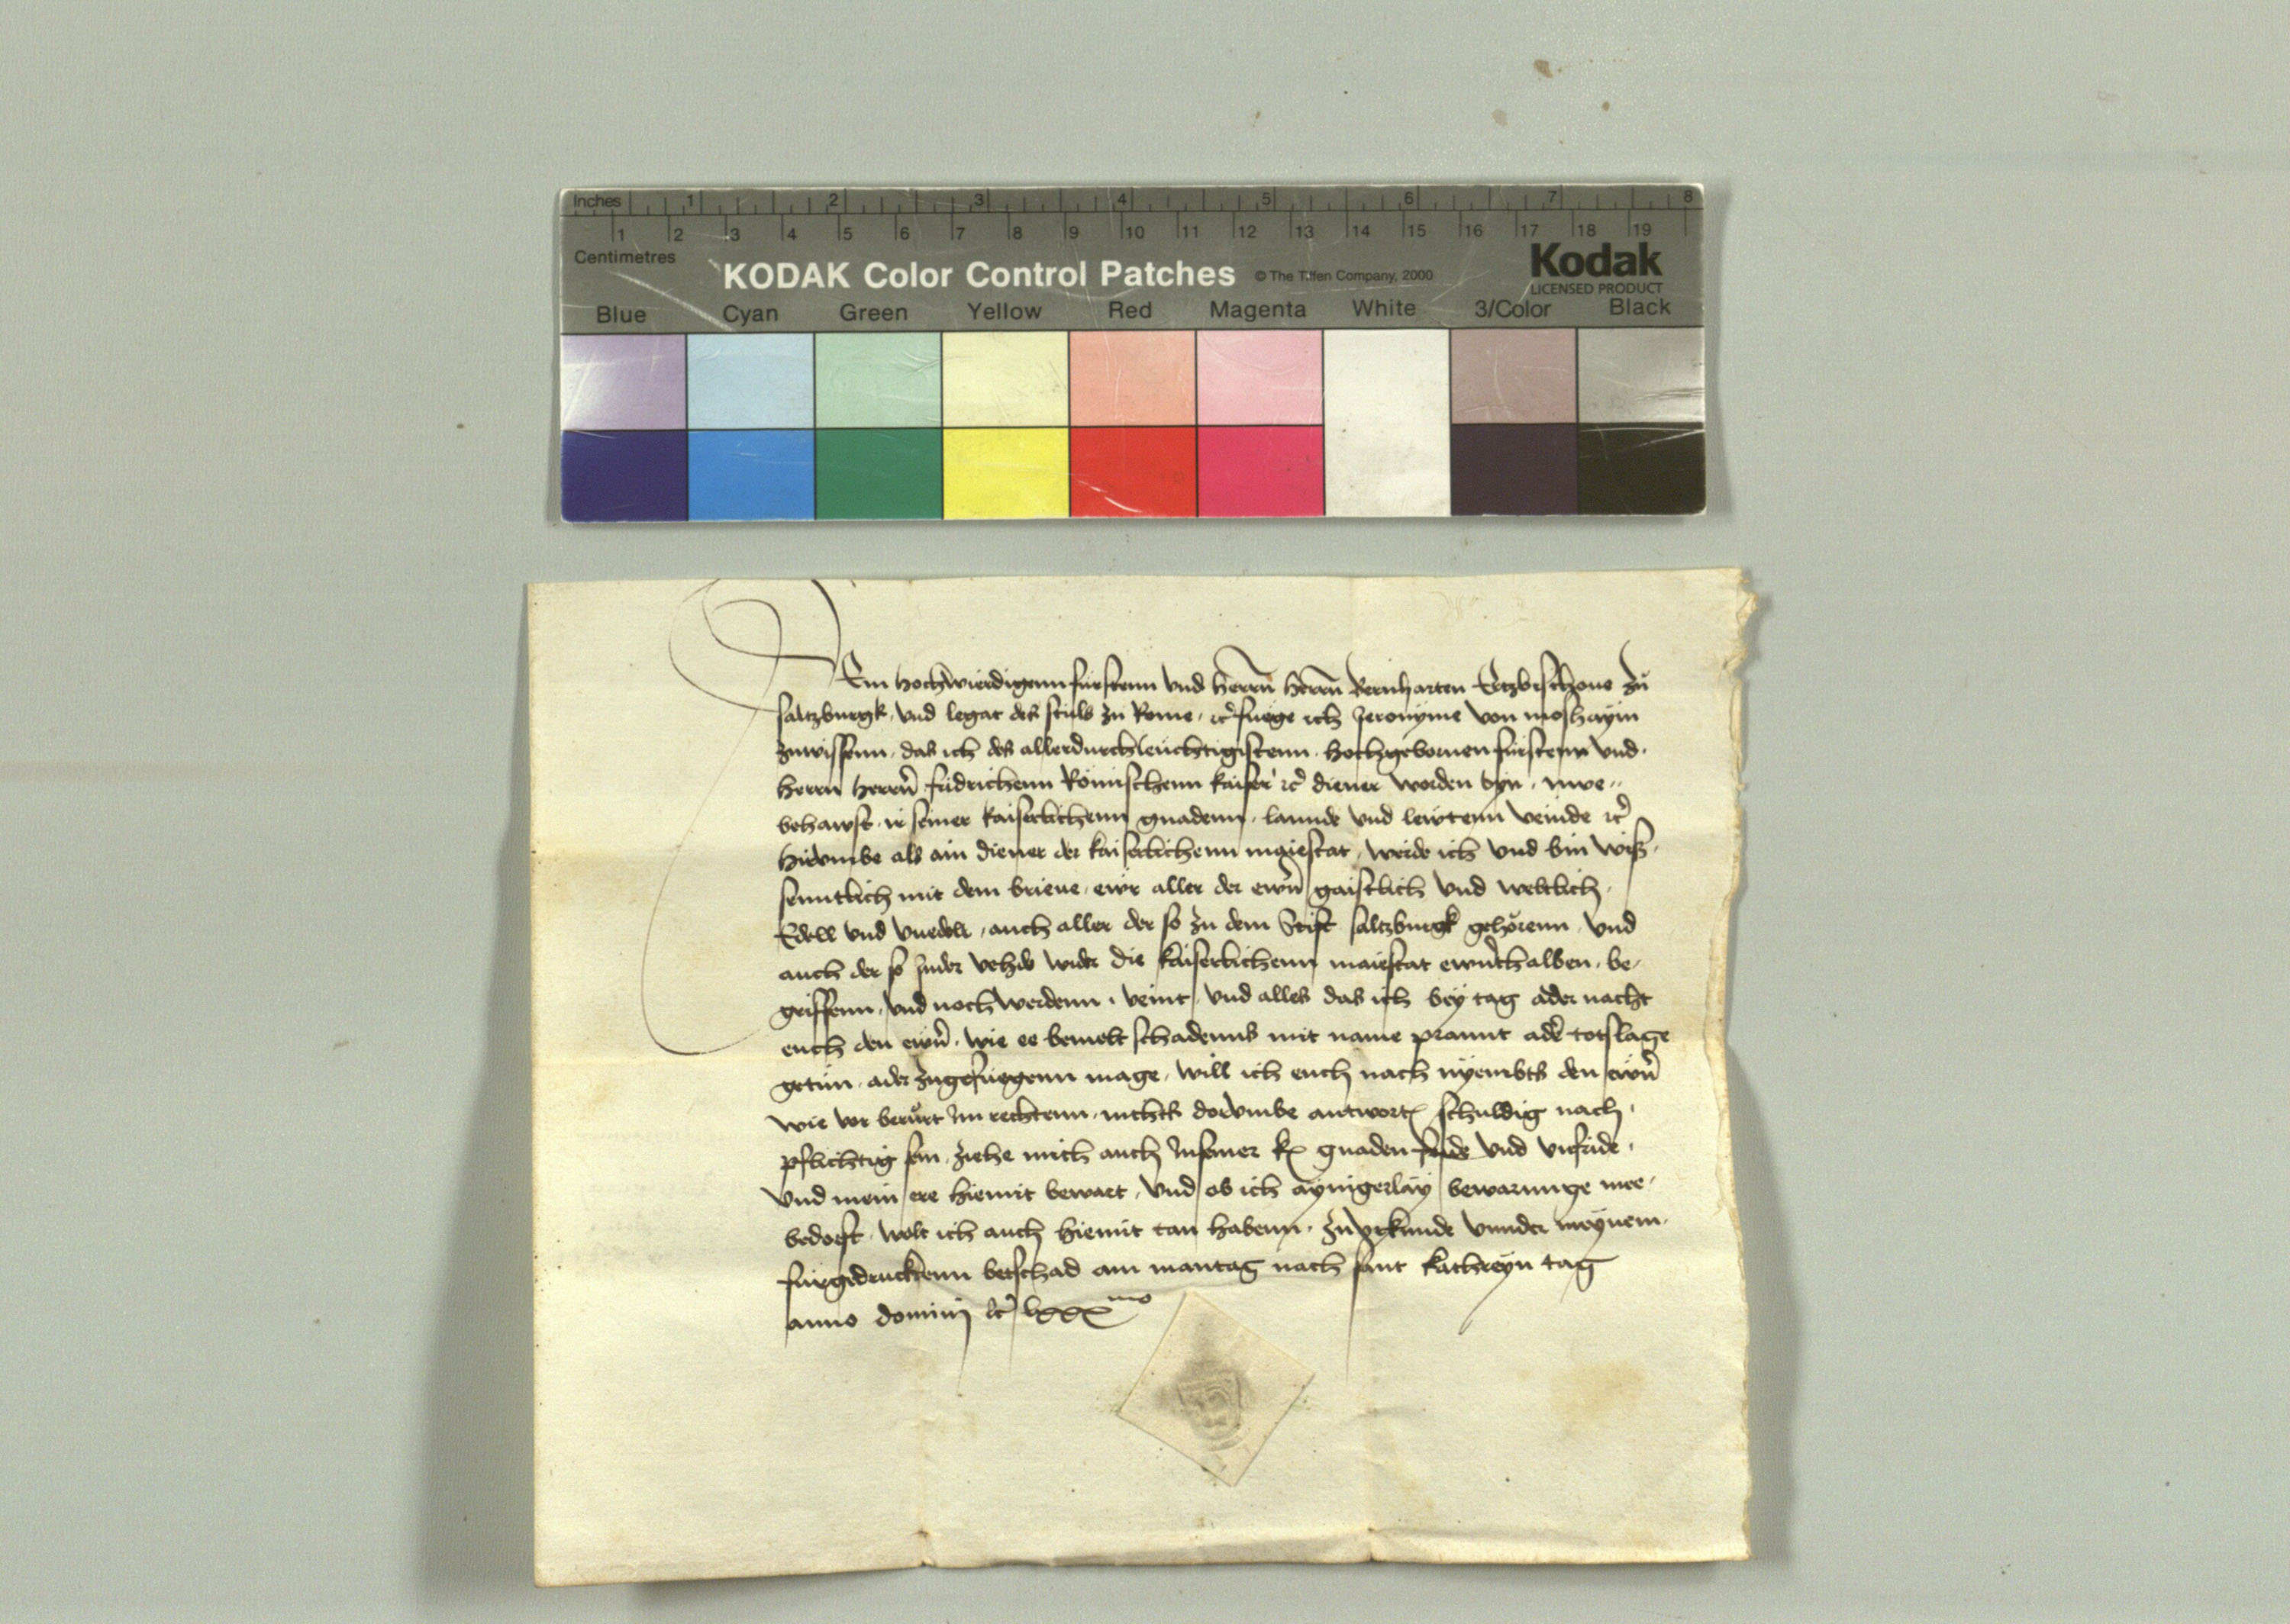 Inches 1 2 3 4 5 6 7 8
1 2 3 4 5 6 7 8 9 10 11 12 13 14 15 16 17 18 19
Centimetres
KODAK Color Control Patches © The Tiffen Company, 2000 Kodak
LICENSED PRODUCT
Blue Cyan Green Yellow Red Magenta White 3/Color Black
Dem hochwirdigenn fürstenn vnd herrn herrn Bernharten Ertzbischoue zů
saltzburgk, vnd legat des stuls zu Rome, etc fuege ich Jeronyme von moshayin
zuwissenn, das ich des allerdurchleuchtigistenn, hochgebornen fürstenn vnd
herrn herrn fridrichenn Römischenn kaiser etc diener worden byn, nwe
behawst ir seiner kaiserlichenn gnadenn, lannde vnd lewtenn veinde etc
hirvmbe als ain diener der kaiserlichenn maiestat, wirde ich vnd bin wiß
senntlich mit dem brieue, ewr aller der ewrn gaistlich vnd weltlich,
Edell vnd vnedell, auch aller der so zu dem Stift saltzburgk gehörenn, vnd
auch der so inder vehde wider die kaiserlichenn maiestat ewrnthalben, be
griffenn, vnd noch werdenn, veint, vnd alles das ich bey tag ader nacht
euch den ewrn, wie ee bemelt schadenns mit name prannt ader totslage
getun, ader zugefuegenn mage, will ich euch nach nyembts den ewrn
wie vor berůrt im rechtenn, nichts dorvmbe antwort schuldig nach
pflichtig sein, ziehe mich auch in seiner k gnaden fride vnd vnfride,
vnd mein ere hiemit bewart, vnd ob ich aynigerlay bewarunge mee
bedorft, wolt ich auch hiemit tan habenn, zu vrkunde vnnder meynem
fürgedrucktenn betschad am mantag nach sant kathreyn tag
anno dominj etc lxxx mo